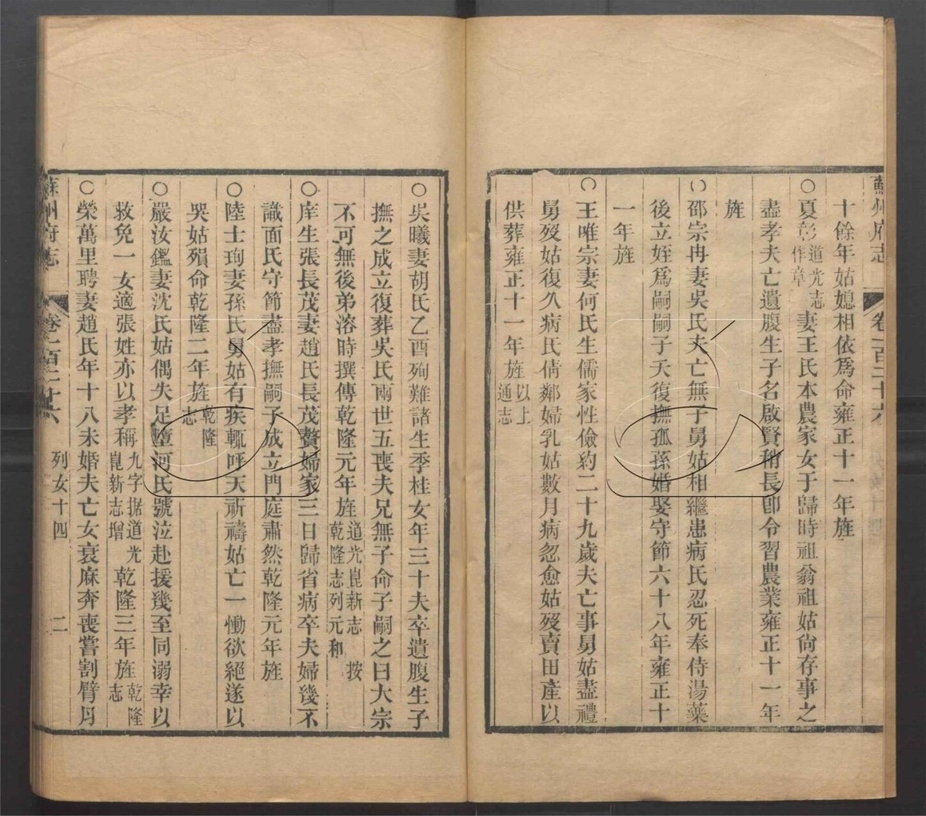 蘇州府志 卷一百二十六
十餘年姑媳相依爲命雍正十一年旌
○夏彭道光志作章妻王氏本農家女于歸時祖翁祖姑尙存事之
盡孝夫亡遺腹生子名啟賢稍長卽令習農業雍正十一年
旌
○邵宗冉妻吳氏夫亡無子舅姑相繼患病氏忍死奉侍湯藥
後立姪爲嗣嗣子夭復撫孤孫婚娶守節六十八年雍正十
一年旌
○王唯宗妻何氏生儒家性儉約二十九歲夫亡事舅姑盡禮
舅歿姑復久病氏倩鄰婦乳姑數月病忽愈姑歿賣田產以
供葬雍正十一年旌以上通志
○吳曦妻胡氏乙酉殉難諸生季桂女年三十夫卒遺腹生子
撫之成立復葬吳氏兩世五喪夫兄無子命子嗣之曰大宗
不可無後弟溶時撰傳乾隆元年旌道光崑新志 按乾隆志列元和
○庠生張長茂妻趙氏長茂贅婦家三日歸省病卒夫婦幾不
識面氏守節盡孝撫嗣子成立門庭肅然乾隆元年旌
○陸士珣妻孫氏舅姑有疾輒呼天祈禱姑亡一慟欲絕遂以
哭姑殞命乾隆二年旌乾隆志
○嚴汝鑑妻沈氏姑偶失足墮河氏號泣赴援幾至同溺幸以
救免一女適張姓亦以孝稱九字据道光崑新志增乾隆三年旌乾隆志
○榮萬里聘妻趙氏年十八未婚夫亡女衰麻奔喪嘗割臂肉
蘇州府志 卷一百二十六 列女十四 二